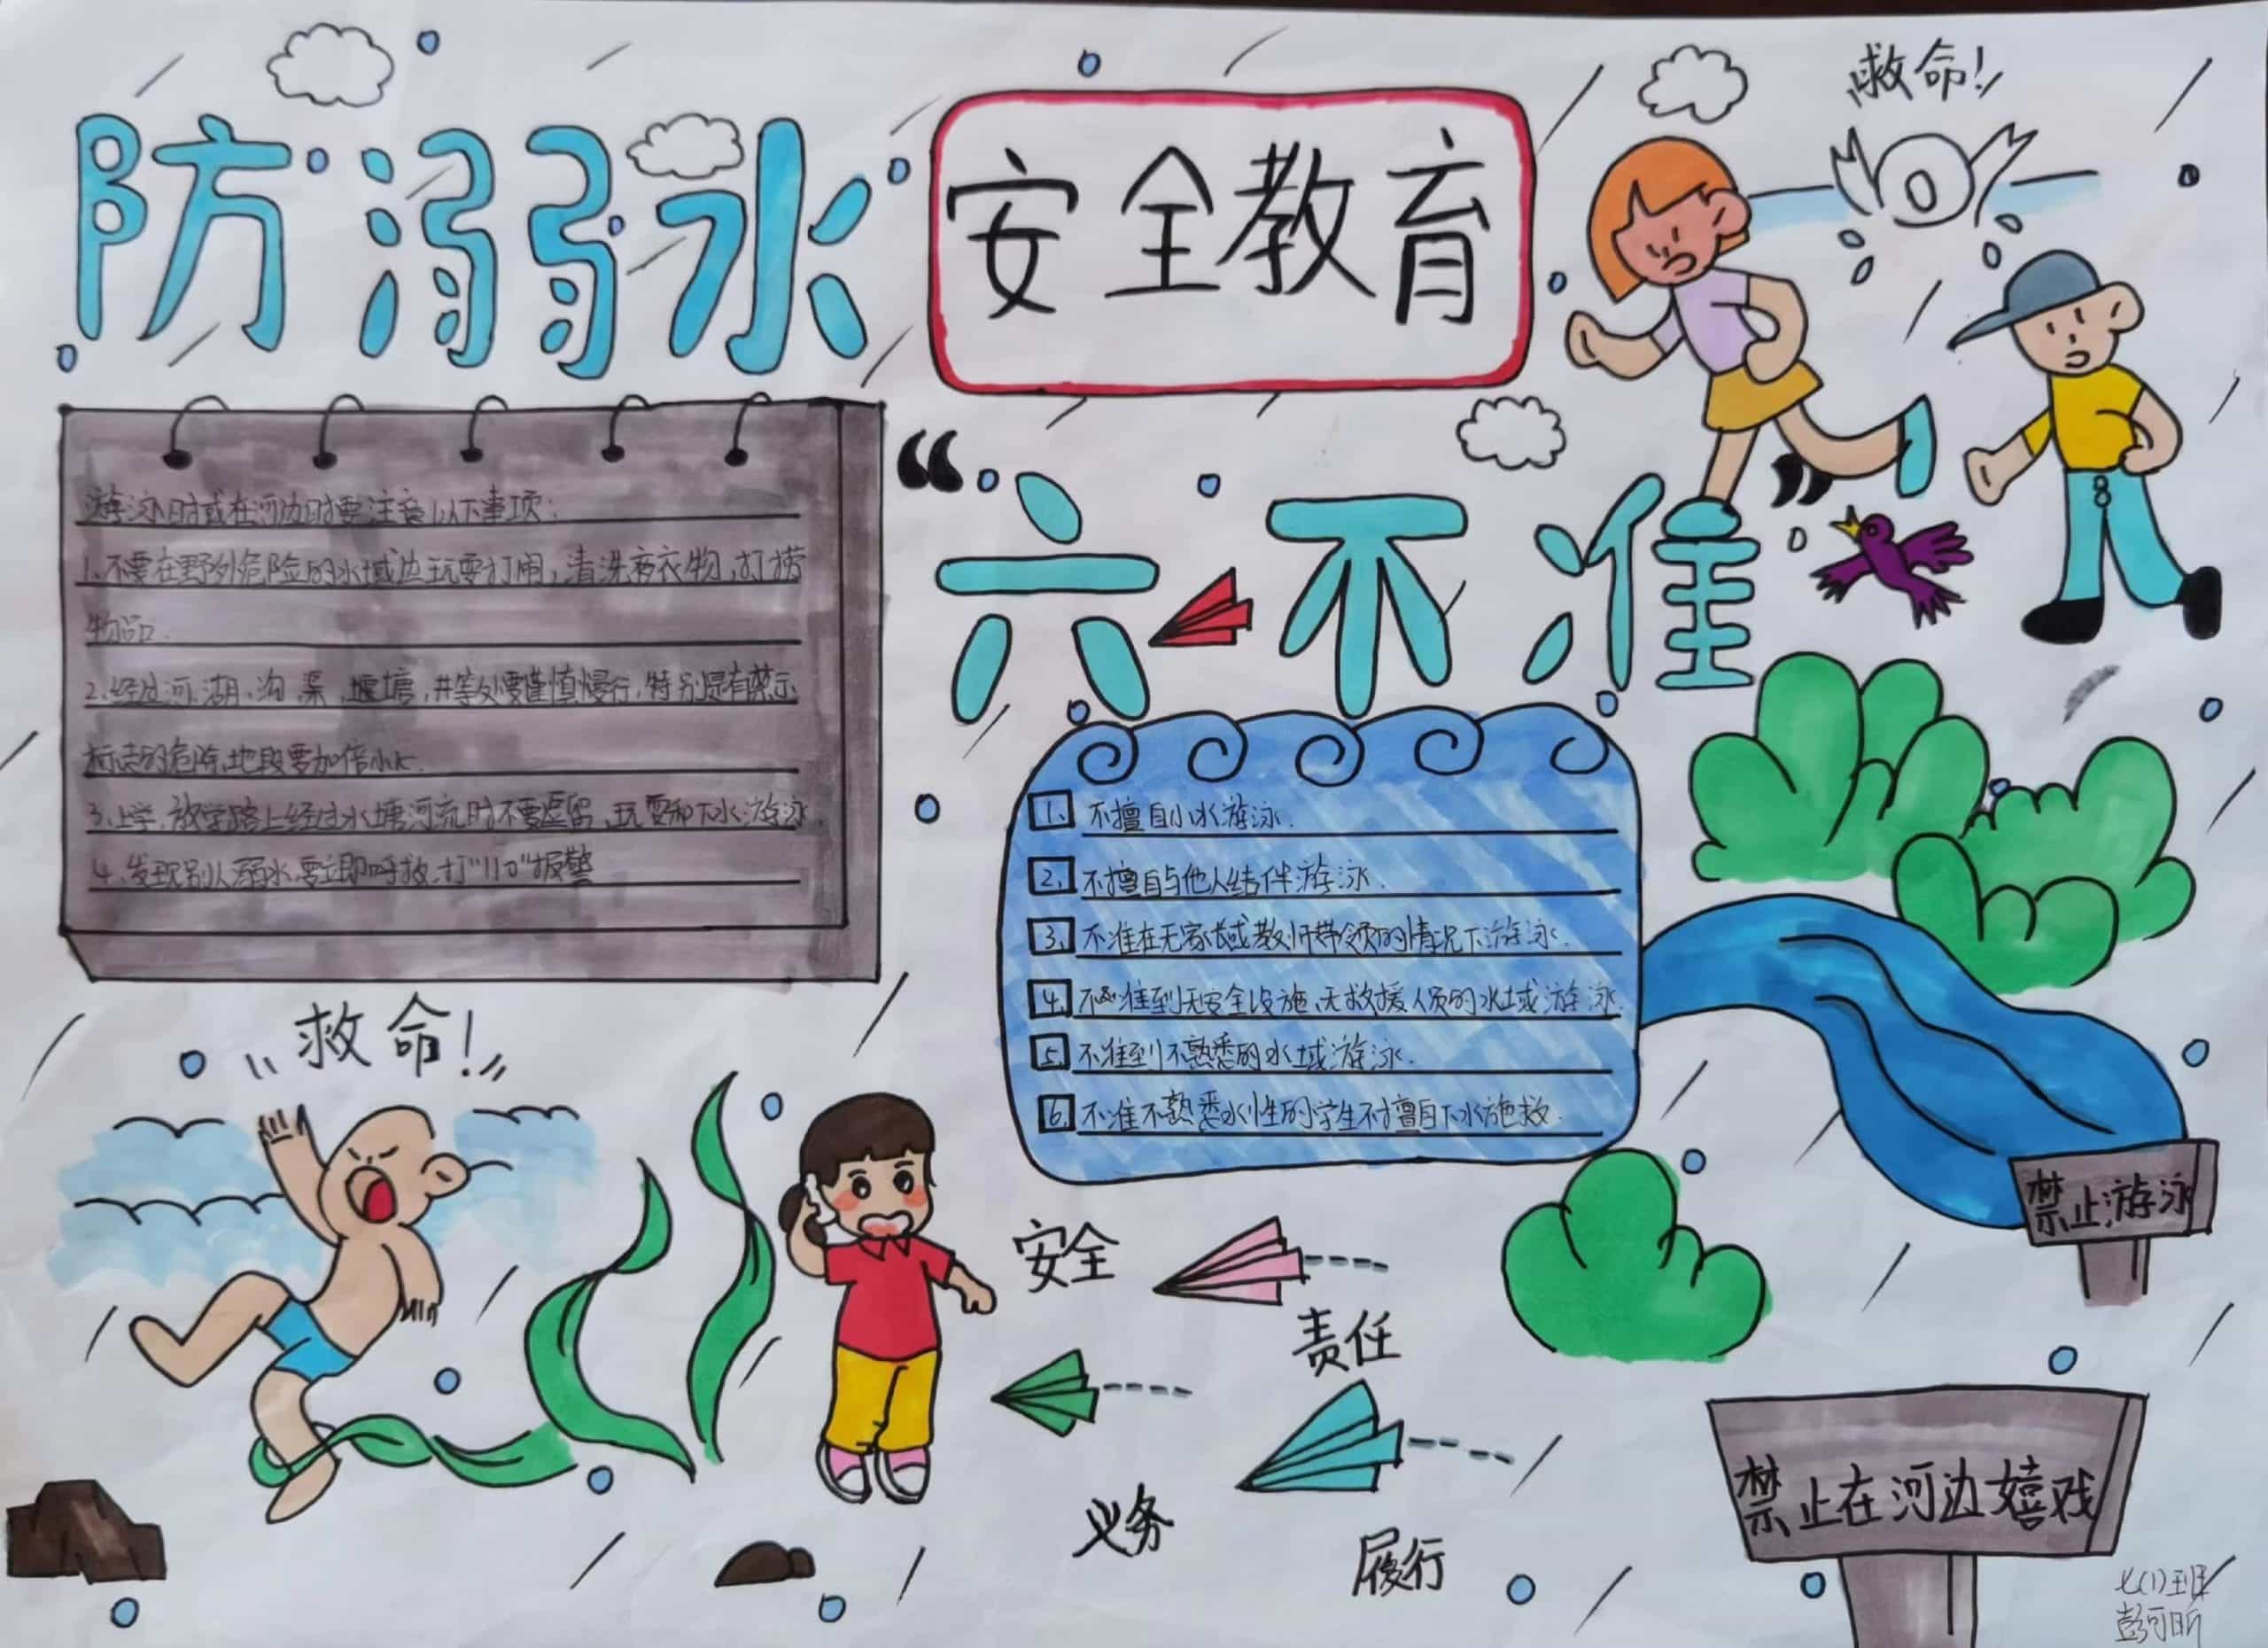 防溺水
安全教育
救命！
“六不准”
游泳时或在河边时要注意以下事项：
1.不要在野外危险的水域边玩耍打闹，清洗衣物，打捞
物品.
2.经过河、湖、沟、渠、堰塘，井等处要谨慎慢行，特别是有禁示
标志的危险地段要加倍小心.
3.上学、放学路上经过水塘河流时不要逗留、玩耍和下水游泳.
4.发现别人溺水，要立即呼救，打“110”报警
1. 不擅自小水游泳.
2. 不擅自与他人结伴游泳.
3. 不准在无家长或教师带领的情况下游泳.
4. 不准到无安全设施、无救援人员的水域游泳
5. 不准到不熟悉的水域游泳.
6. 不准不熟悉水性的学生不擅自下水施救.
救命！
安全
责任
义务
履行
禁止游泳
禁止在河边嬉戏
七(1)班
彭可昕